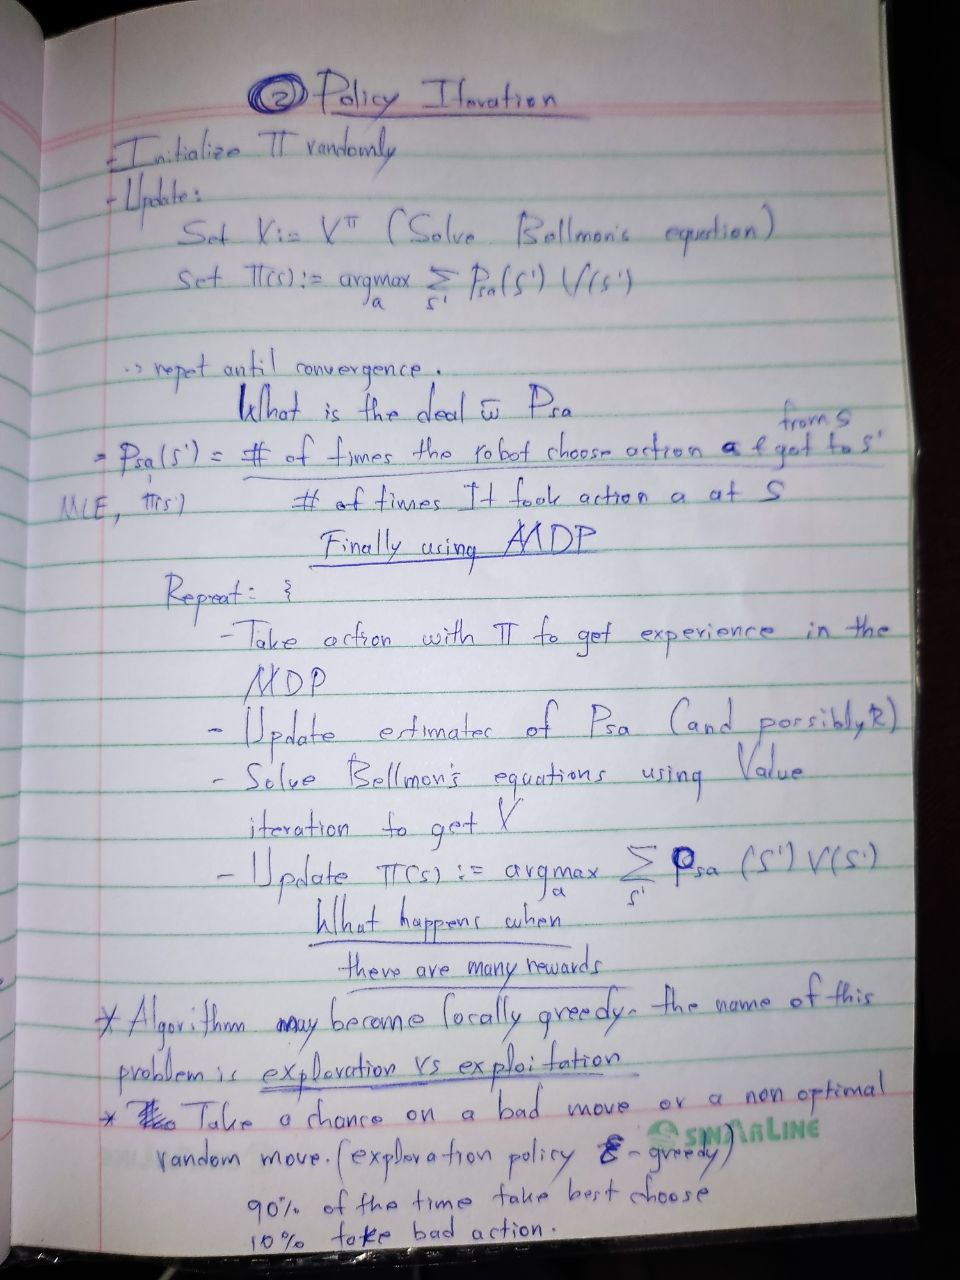 ② Policy Iteration
- Initialize π randomly
- Update:
Set V := V^π (Solve Bellman's equation)
Set π(s) := argmax_a Σ_s' Psa(s') V(s')
-> repet until convergence.
What is the deal w̄ Psa
from s
= Psa(s') = # of times the robot choose action a & got to s'
MLE, π(s) # of times It took action a at S
Finally using MDP
Repeat: {
- Take action with π to get experience in the
MDP
- Update estimates of Psa (and possibly R)
- Solve Bellman's equations using Value
iteration to get V
- Update π(s) := argmax_a Σ_s' Psa (s') V(s')
What happens when
there are many rewards
* Algorithm may become locally greedy. the name of this
problem is exploration vs exploitation
* Take a chance on a bad move or a non optimal
SINARLINE
random move. (exploration policy ε-greedy)
90% of the time take best choose
10% take bad action.